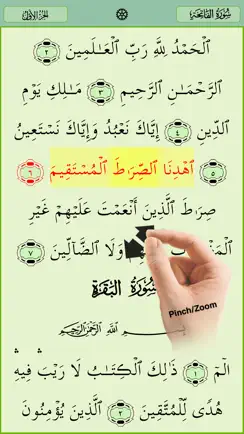 الجزء الأول سُورَةُ الفَاتِحَةِ
ٱلْحَمْدُ لِلَّهِ رَبِّ ٱلْعَـٰلَمِينَ ٢
ٱلرَّحْمَـٰنِ ٱلرَّحِيمِ ٣ مَـٰلِكِ يَوْمِ
ٱلدِّينِ ٤ إِيَّاكَ نَعْبُدُ وَإِيَّاكَ نَسْتَعِينُ
٥ ٱهْدِنَا ٱلصِّرَٰطَ ٱلْمُسْتَقِيمَ ٦
صِرَٰطَ ٱلَّذِينَ أَنْعَمْتَ عَلَيْهِمْ غَيْرِ
وَلَا ٱلضَّآلِّينَ ٧
سُورَةُ البَقَرَةِ
Pinch/Zoom
بِسْمِ ٱللَّهِ ٱلرَّحْمَـٰنِ ٱلرَّحِيمِ
الٓمٓ ١ ذَٰلِكَ ٱلْكِتَـٰبُ لَا رَيْبَ ۛ فِيهِ ۛ
هُدًى لِّلْمُتَّقِينَ ٢ ٱلَّذِينَ يُؤْمِنُونَ